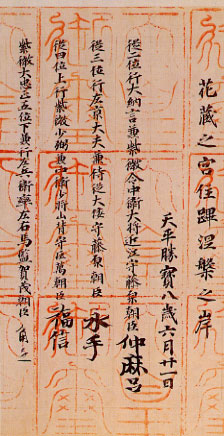 花藏之宮住蹕涅槃之岸
天平勝寶八歳六月廿一日
從二位行大納言兼紫微令中衛大將近江守藤原朝臣仲麻呂
從三位行左京大夫兼侍從大倭守藤原朝臣永手
從四位上行紫微少弼兼中衛少將山背守巨萬朝臣福信
紫微大忠正五位下兼行左兵衛率左右馬監賀茂朝臣角